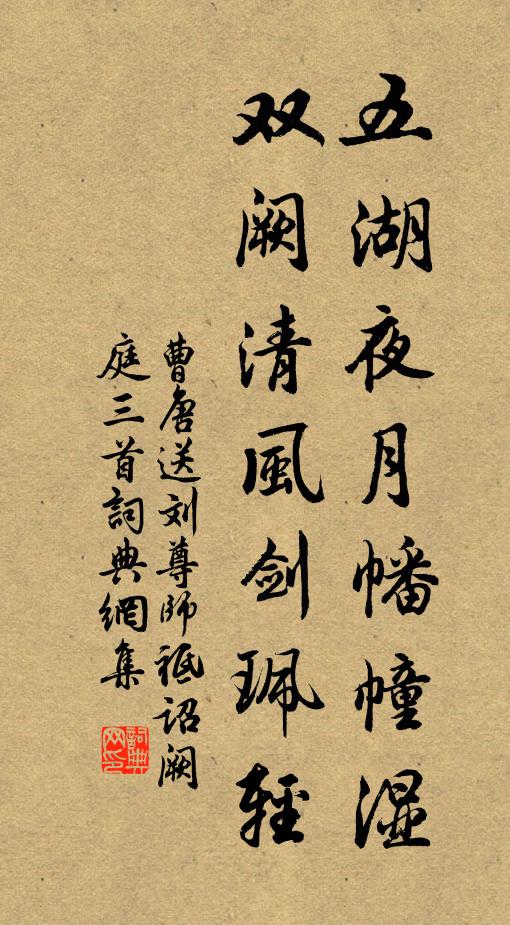 五湖夜月幡幢湿
双阙清風剑珮輕
曹唐送刘尊师祗诏阙
庭三首詞典網集
詞典网印